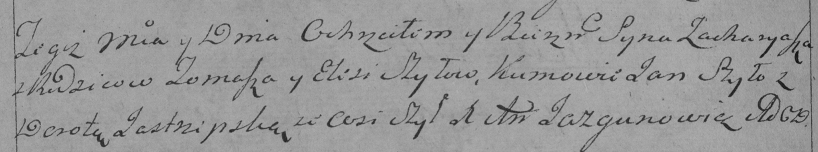 Tegiż Mca y Dnia Ochrzciłem y Bierzm. Syna Zacharyasza
z Rodzicow Tomasza y Elisi Szyłow, Kumowie Jan Szyło z
Dorotą Jastrzępską ze wsi Szył X An Jazgunowicz